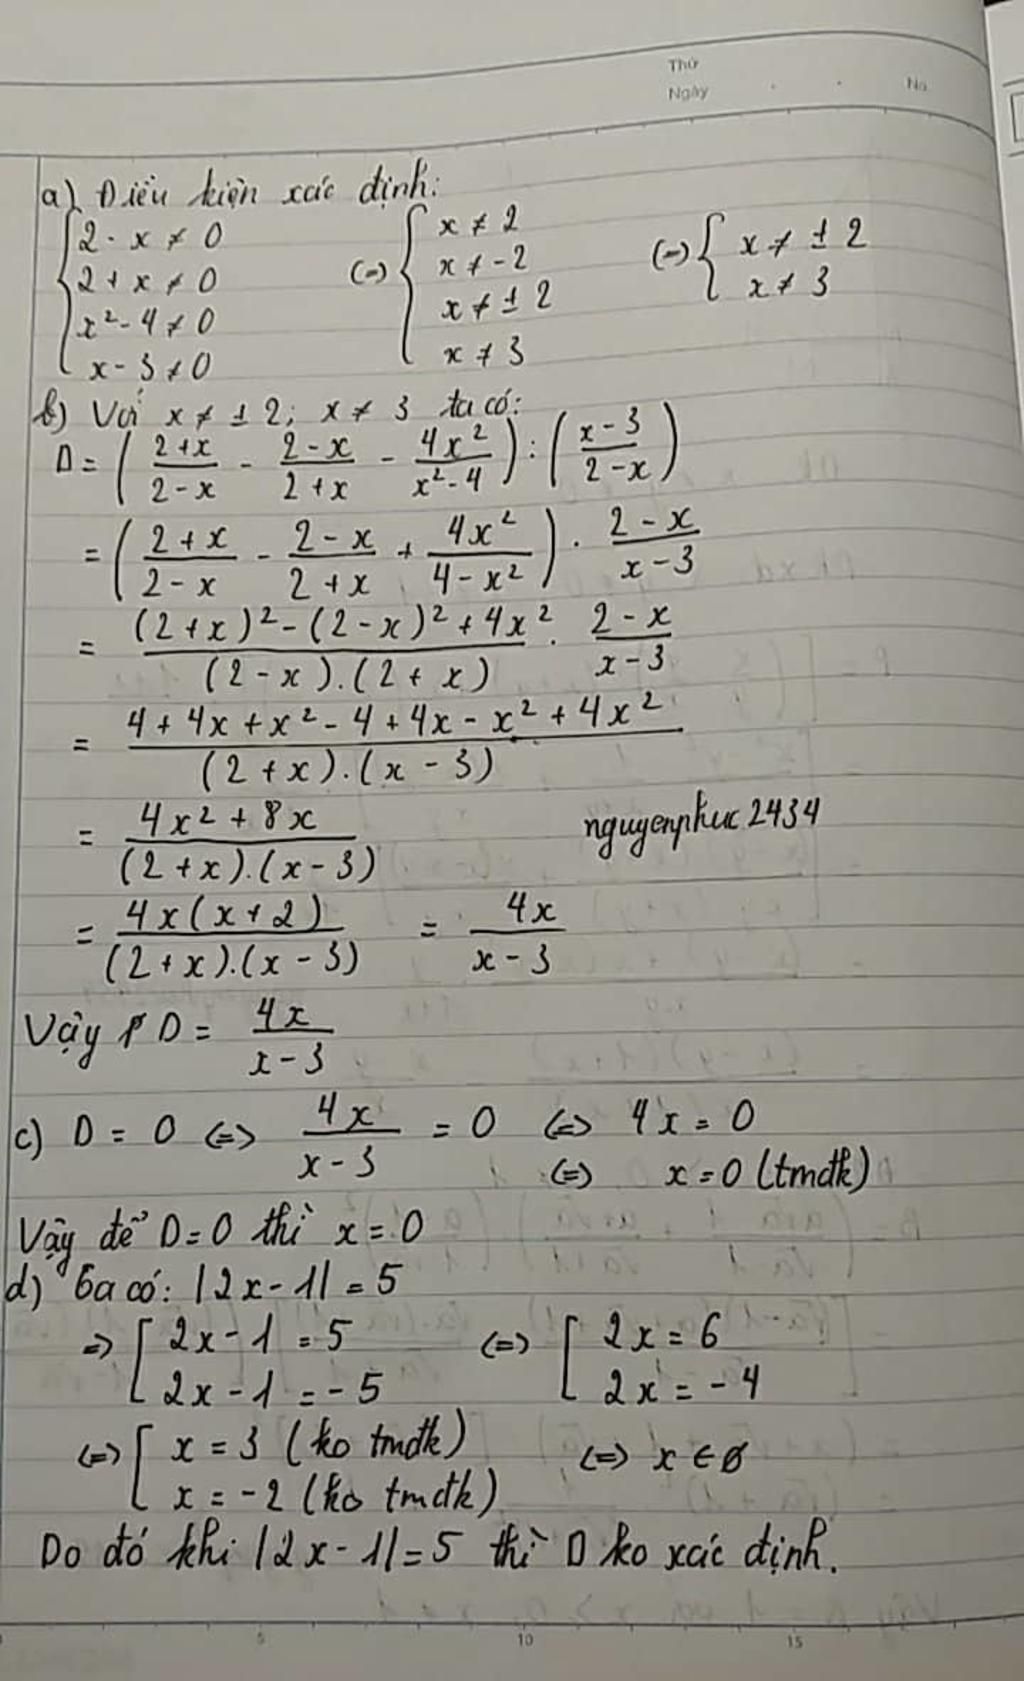 Thứ
Ngày . . No.
a) Điều kiện xác định:
{ 2 - x ≠ 0
2 + x ≠ 0
x² - 4 ≠ 0
x - 3 ≠ 0
(=) { x ≠ 2
x ≠ -2
x ≠ ± 2
x ≠ 3
(=) { x ≠ ± 2
x ≠ 3
b) Với x ≠ ± 2; x ≠ 3 ta có:
D = ( (2+x)/(2-x) - (2-x)/(2+x) - 4x²/(x²-4) ) : ( (x-3)/(2-x) )
= ( (2+x)/(2-x) - (2-x)/(2+x) + 4x²/(4-x²) ) . (2-x)/(x-3)
= ((2+x)² - (2-x)² + 4x²)/((2-x).(2+x)) . (2-x)/(x-3)
= (4 + 4x + x² - 4 + 4x - x² + 4x²)/((2+x).(x-3))
= (4x² + 8x)/((2+x).(x-3))
nguyenphuc2434
= (4x(x+2))/((2+x).(x-3)) = 4x/(x-3)
Vậy D = 4x/(x-3)
c) D = 0 <=> 4x/(x-3) = 0 <=> 4x = 0
<=> x = 0 (tmđk)
Vậy để D=0 thì x=0
d) Ta có: |2x-1| = 5
=> [ 2x-1 = 5
2x-1 = -5
<=> [ 2x = 6
2x = -4
<=> [ x = 3 (ko tmđk)
x = -2 (ko tmđk)
<=> x ∈ ∅
Do đó khi |2x-1|=5 thì D ko xác định.
5 10 15